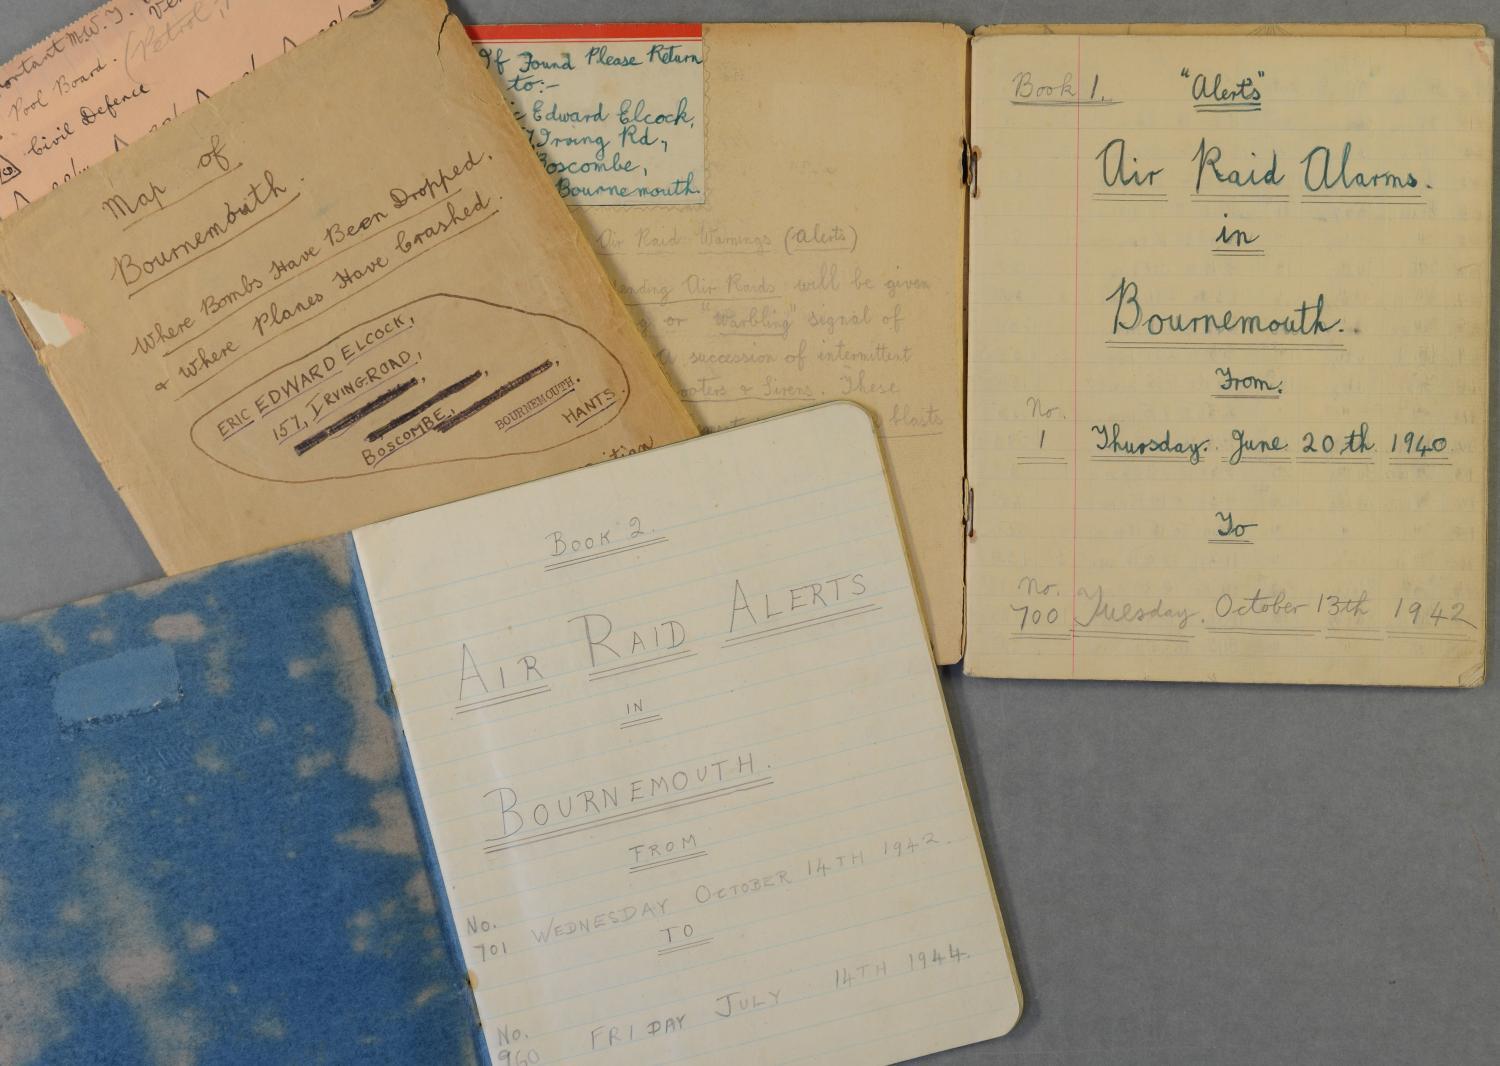 Pool Board. (Petrol,
Civil Defence
Map of
Bournemouth.
Where Bombs Have Been Dropped.
& Where Planes Have Crashed.
ERIC EDWARD ELCOCK,
157, IRVING ROAD,
BOSCOMBE,
BOURNEMOUTH.
HANTS.
If Found Please Return
to:-
Edward Elcock,
Irving Rd,
Boscombe,
Bournemouth.
Air Raid Warnings (Alerts)
Air Raids will be given
or "Warbling" signal of
A succession of intermittent
& Sirens. These
blasts
Book 1. "Alerts"
Air Raid Alarms.
in
Bournemouth.
From.
No.
1 Thursday. June 20th 1940
To
No.
700 Tuesday. October 13th 1942
BOOK 2.
AIR RAID ALERTS
IN
BOURNEMOUTH.
FROM
No.
701 WEDNESDAY OCTOBER 14TH 1942.
TO
No.
960 FRIDAY JULY 14TH 1944.